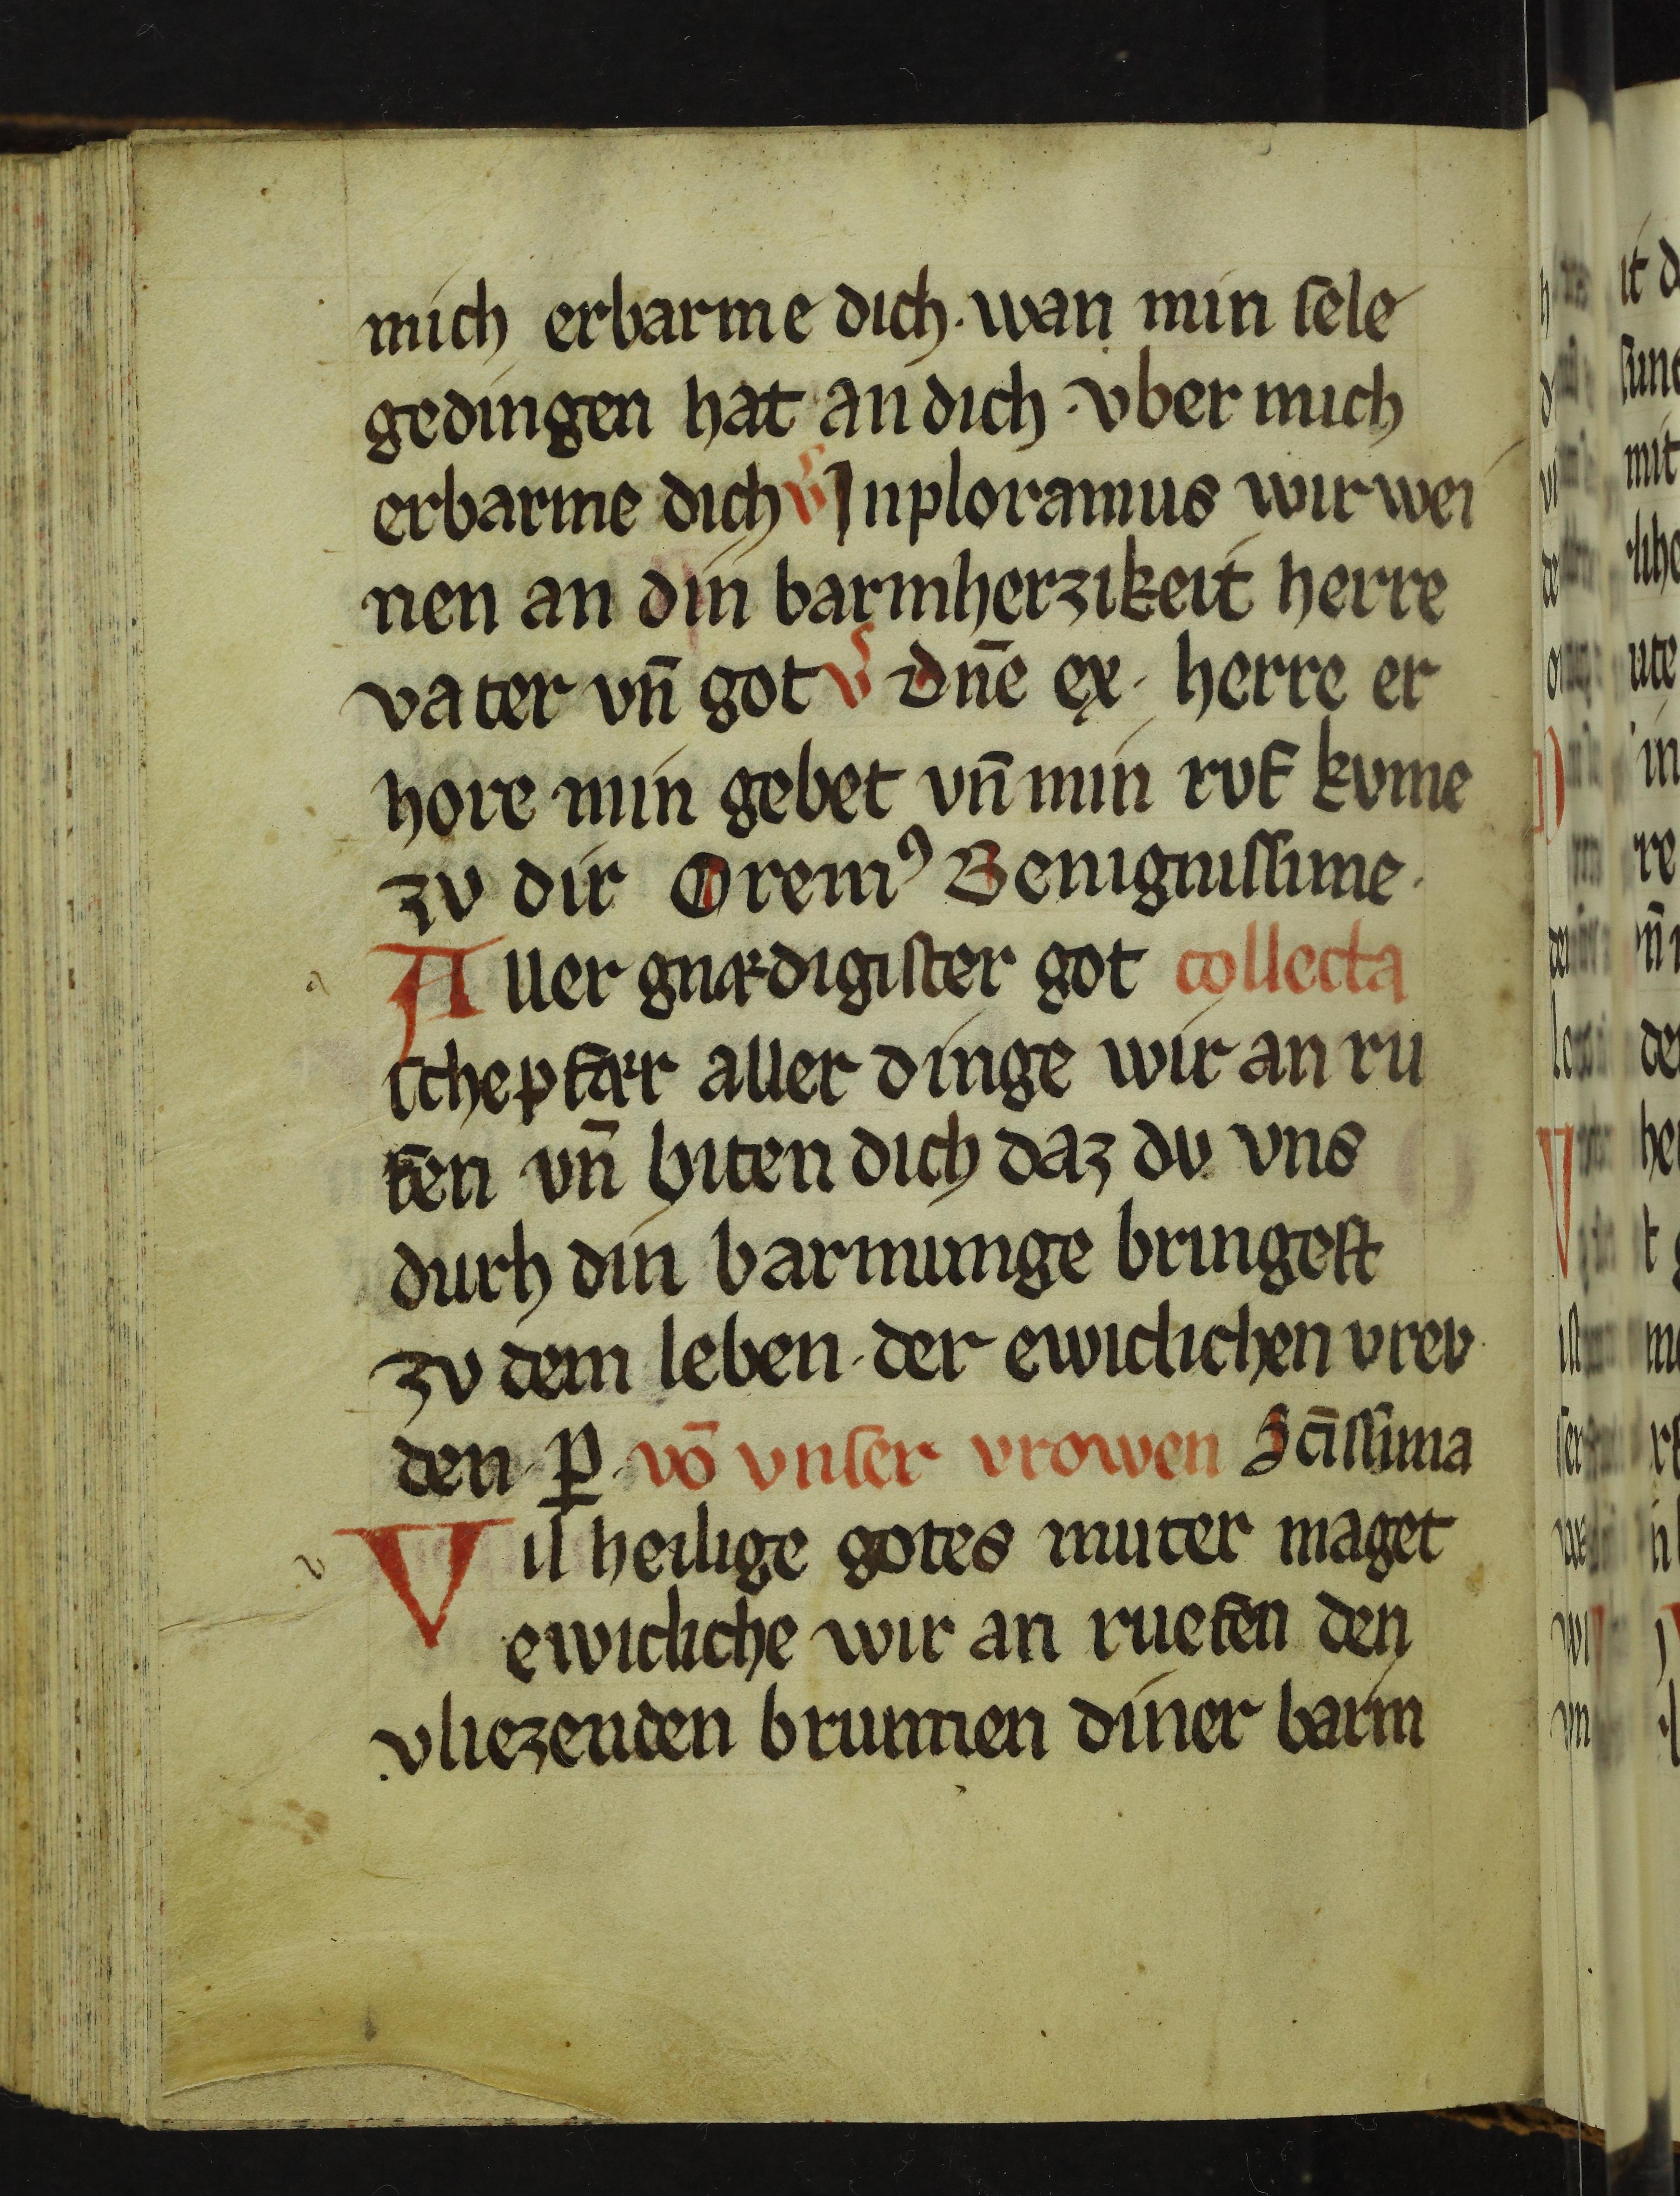 mich erbarme dich · wan min ſele
gedingen hat an dich · vber mich
erbarme dich v̄ Jnploramus wir wei
nen an din barmherzikeit herre
vater vn̄ got v̄ dn̄e ex · herre er
hore min gebet vn̄ min rvf kvme
zv dir Orem⁹ Benigniſſime ·
Aller gnædigiſter got collecta
ſchepfær aller dinge wir an ru
fen vn̄ biten dich daz dv vns
durh din barmunge bringeſt
zv dem leben · der ewiclichen vrev
den · ꝑ · vō vnſer vrowen Sc̄iſſima
Vil heilige gotes muter maget
ewicliche wir an ruefen den
vliezenden brunnen diner barm